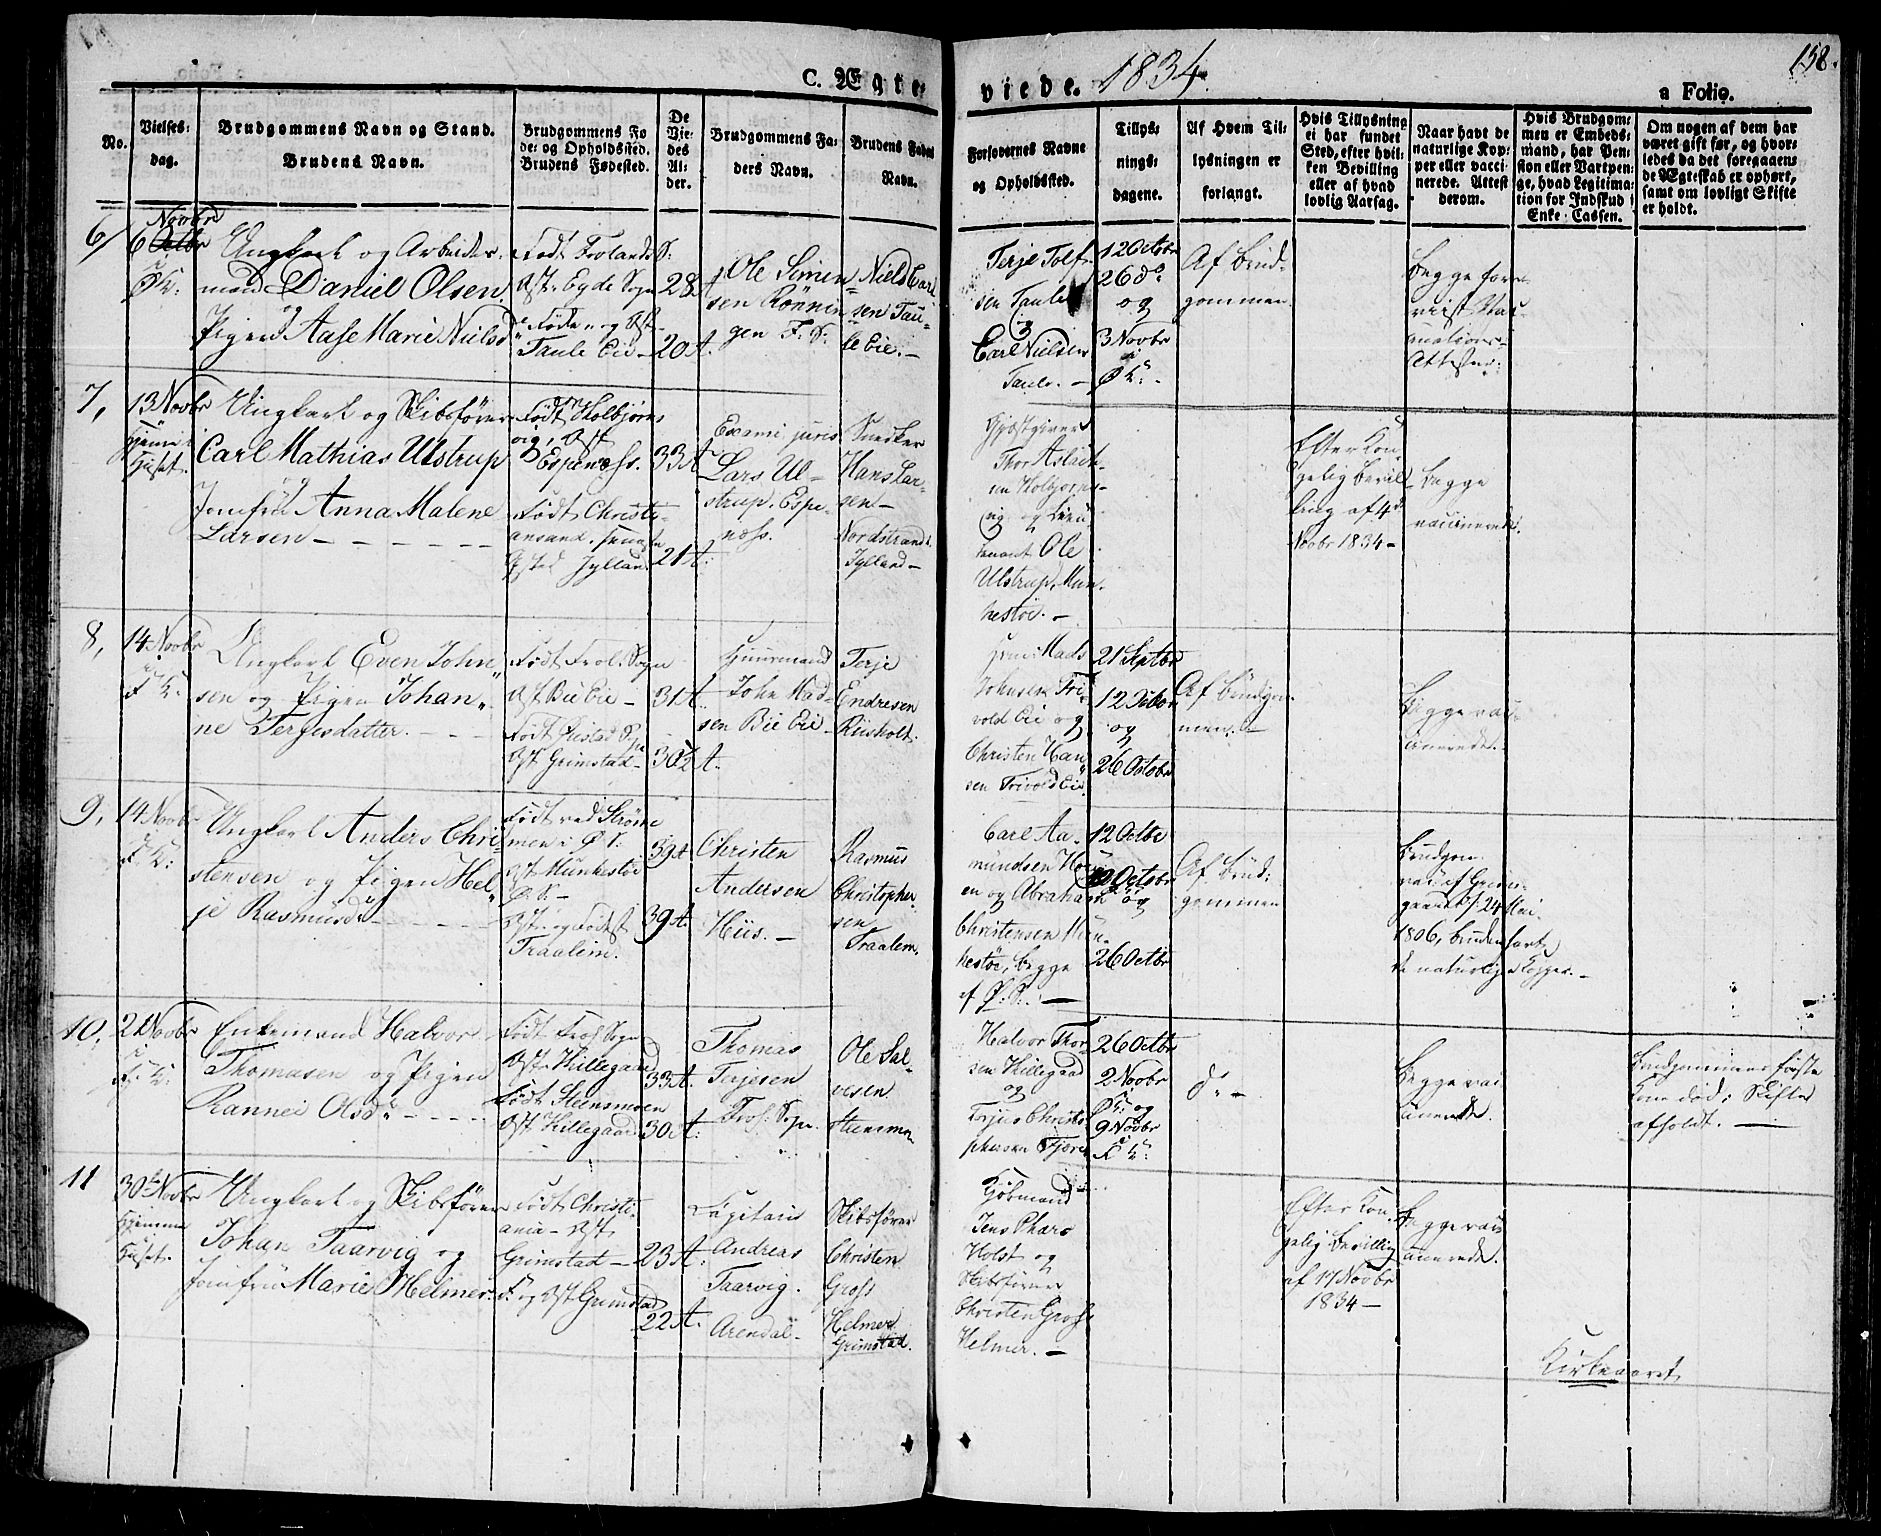 158.
C. Ægte-
viede. 1834.
a Folio.
No.
Vielses-
dag.
Brudgommens Navn og Stand.
Brudens Navn.
Brudgommens Fø
de- og Opholdssted.
Brudens Fødested.
De
Vie-
des
Al-
der.
Brudgommens Fa-
ders Navn.
Brudens Faders
Navn.
Forlovernes Navne
og Opholdssted.
Tillys-
nings-
dagene.
Af Hvem Til-
lysningen er
forlangt.
Hvis Tillysning
ei har fundet
Sted, efter hvil-
ken Bevilling
eller af hvad
lovlig Aarsag.
Naar havt de
naturlige Kop-
per eller vacci-
nerede. Attest
derom.
Hvis Brudgom-
men er Embeds-
mand, har Pen-
sion eller Vartpen-
ge, hvad Legitima-
tion for Indskud i
Enke-Cassen.
Om nogen af dem har
været gift før, og hvor-
ledes da det foregaaen-
de Ægteskab er ophørt,
samt om lovligt Skifte
er holdt.
6/
Novbr
6 Octbr
i
Ø K:
Ungkarl og Arbeids-
mand Daniel Olsen
og
Pigen Aase Marie Nielsd
Født Frolands S:
Opst. Eyde Sogn
Født og Opst
Taule Eie
28 A
20 A.
Ole Simen-
sen Rønnin-
gen F. S.
Niels Carl
sen Tau-
le Eie.
Terje Tolf-
sen Taule
og
Carl Nielsen
Taule. -
12 Octbr
26 do
og
3 Novbr
i
Ø K: -
Af Brud-
gommen.
Begge fore-
viist Vac-
cinations-
Attester.
7,
13 Novbr
hjemme i
Huset.
Ungkarl og Skibsfører
Carl Mathias Ulstrup
og
Jomfru Anna Malene
Larsen
Født Kolbjørns
vig, Opst
Espenæss.
Født Christi-
ansand, seneste
Opsted Jylland
33 A
21 A.
Exami. juris
Lars Ul-
strup, Espe-
næss.
Snedker
Hans Lar-
sen
Nordstrand i
Jylland
Gjæstgiver
Thor Aslach-
sen Kolbjørns-
vig og Lieu-
tenant Ole
Ulstrup, Mun-
kestøe. -
Efter Kon-
gelig Bevil-
ling af 4de
Novbr 1834 -
Begge
vaccinerede.
8,
14 Novbr
i
F K:
Ungkarl Even John-
sen og Pigen Johan-
ne Terjesdatter.
Født Frol. Sogn
Opst Bie Eie
Født Fiestad S
Opst Grimstad
31 A.
30 1/2 A.
Huusmand
John Mad-
sen Bie Eie
Terje
Endresen
Riisholt.
Mads
Johnsen Tri-
vold Eie og
Christen Han
sen Trivold Eie
21 Septbr
12 Octbr
og
26 Octobr
Af Brudgom-
men.
Begge vac-
cinerede.
9,
14 Novbr
F K:
Ungkarl Anders Chri-
stensen og Pigen Hel-
je Rasmusd
Født ved Strøm-
men i Ø S:
Opst Munkestøe
Ø. S.
Opst. og Født
Traalem.
39 A
39 A.
Christen
Andersen
Hiis.
Rasmus
Christopher-
sen
Traalem.
Carl Aa-
mundsen
en og Abraham
Christensen Mun-
kestøe, begge
af Ø. S.
12 Octbr
19 Octbr
og
26 Octbr
Af Brud-
gommen
Brudgom-
vac: af
24 Mai
1806, Bruden havt
de naturlige Kopper. -
10,
21 Novbr
i
F K:
Enkemand Halvor
Thomasen og Pigen
Rannei Olsd
Født Fros. Sogn
Opst. Hillegaard
Født Steensmoen
Opst Hillegaard
33 A.
30 A.
Thomas
Terjesen
Fros. Sogn.
Ole Sal-
vesen
Steensmoen
Halvor Thor-
sen Hillegaard
og
Terjus Christo-
phersen Fjære
26 Octbr
2 Novbr
Ø K: og
9 Novbr
F K:
do -
Begge vac-
cinerede.
Brudgommens første
Kone død; Skifte
afholdt.
11
30te Novbr
hjemme
Huset.
Ungkarl og Skibsfører
Johan Taarvig og
Jomfru Marie Helmer.
Født Christi-
ania - Opst.
Grimstad
F. og Opst Grimstad
23 A.
22 A.
Capitain
Andreas
Taarvig.
Arendal
Skibsfører
Christen
Gross
Helmer
Grimstad.
Kjøbmand
Jens Pharo
Holst og
Skibsfører
Christen Gross
Helmer.
Efter Kon-
gelig Bevillig
af 17 Novbr
1834 -
Begge vac-
cinerede.
Kirkeaaret